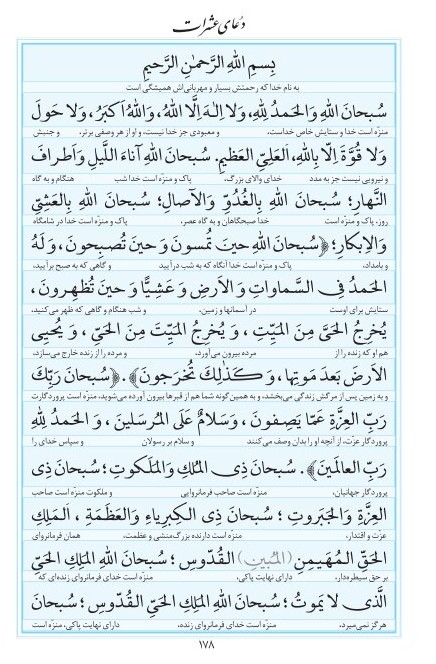 دعای عشرات
بِسمِ اللهِ الرَّحمٰنِ الرَّحیمِ
به نام خدا که رحمتش بسیار و مهربانی‌اش همیشگی است
سُبحانَ اللهِ وَالحَمدُ لِلّٰهِ، وَلا اِلٰهَ اِلَّا اللهُ، وَاللهُ اَکبَرُ، وَلا حَولَ
منزّه است خدا و ستایش خاص خداست، و معبودی جز خدا نیست، و او از هر وصفی برتر، و جنبش
وَلا قُوَّةَ اِلّا بِاللهِ، اَلعَلِیِّ العَظیمِ. سُبحانَ اللهِ آناءَ اللَّیلِ وَاَطرافَ
و نیرویی نیست جز به مدد خدای والای بزرگ، پاک و منزّه است خدا شب هنگام و به گاه
النَّهارِ؛ سُبحانَ اللهِ بِالغُدُوِّ وَالآصالِ؛ سُبحانَ اللهِ بِالعَشِیِّ
روز، پاک و منزّه است خدا صبحگاهان و به گاه عصر، پاک و منزّه است خدا در شامگاه
وَالاِبکارِ؛ ﴿سُبحانَ اللهِ حینَ تُمسونَ وَ حینَ تُصبِحونَ، وَ لَهُ
و بامداد، پاک و منزّه است خدا آنگاه که به شب درآیید و گاهی که به صبح برآیید،
الحَمدُ فِی السَّماواتِ وَ الاَرضِ وَ عَشِیًّا وَ حینَ تُظهِرونَ،
ستایش برای اوست در آسمانها و زمین، و شب هنگام و گاهی که ظهر می‌کنید.
یُخرِجُ الحَیَّ مِنَ المَیِّتِ، وَ یُخرِجُ المَیِّتَ مِنَ الحَیِّ، وَ یُحیِی
هم او که زنده را از مرده بیرون می‌آورد، و مرده را از زنده خارج می‌سازد،
الاَرضَ بَعدَ مَوتِها، وَ کَذٰلِکَ تُخرَجونَ﴾. ﴿سُبحانَ رَبِّکَ
و به زمین پس از مرگش زندگی می‌بخشد، و به همین‌گونه شما هم از قبرها بیرون آورده می‌شوید، منزّه است پروردگارت
رَبِّ العِزَّةِ عَمّا یَصِفونَ، وَسَلامٌ عَلَی المُرسَلینَ، وَ الحَمدُ لِلّٰهِ
پروردگار عزّت، از آنچه او را بدان وصف می‌کنند و سلام بر رسولان و سپاس خدای را
رَبِّ العالَمینَ﴾. سُبحانَ ذِی المُلکِ وَالمَلَکوتِ؛ سُبحانَ ذِی
پروردگار جهانیان، منزّه است صاحب فرمانروایی و ملکوت منزّه است صاحب
العِزَّةِ وَ الجَبَروتِ؛ سُبحانَ ذِی الکِبریاءِ وَالعَظَمَةِ، اَلمَلِکِ
عزّت و اقتدار، منزّه است دارنده بزرگ‌منشی و عظمت، همان فرمانروای
الحَقِّ المُهَیمِنِ (المُبینِ) القُدّوسِ؛ سُبحانَ اللهِ المَلِکِ الحَیِّ
بر حق سیطره‌دار، دارای نهایت پاکی، منزّه است خدای فرمانروای زنده‌ای که
الَّذی لا یَموتُ؛ سُبحانَ اللهِ المَلِکِ الحَیِّ القُدّوسِ؛ سُبحانَ
هرگز نمی‌میرد، منزّه است خدای فرمانروای زنده، دارای نهایت پاکی، منزّه است
۱۷۸